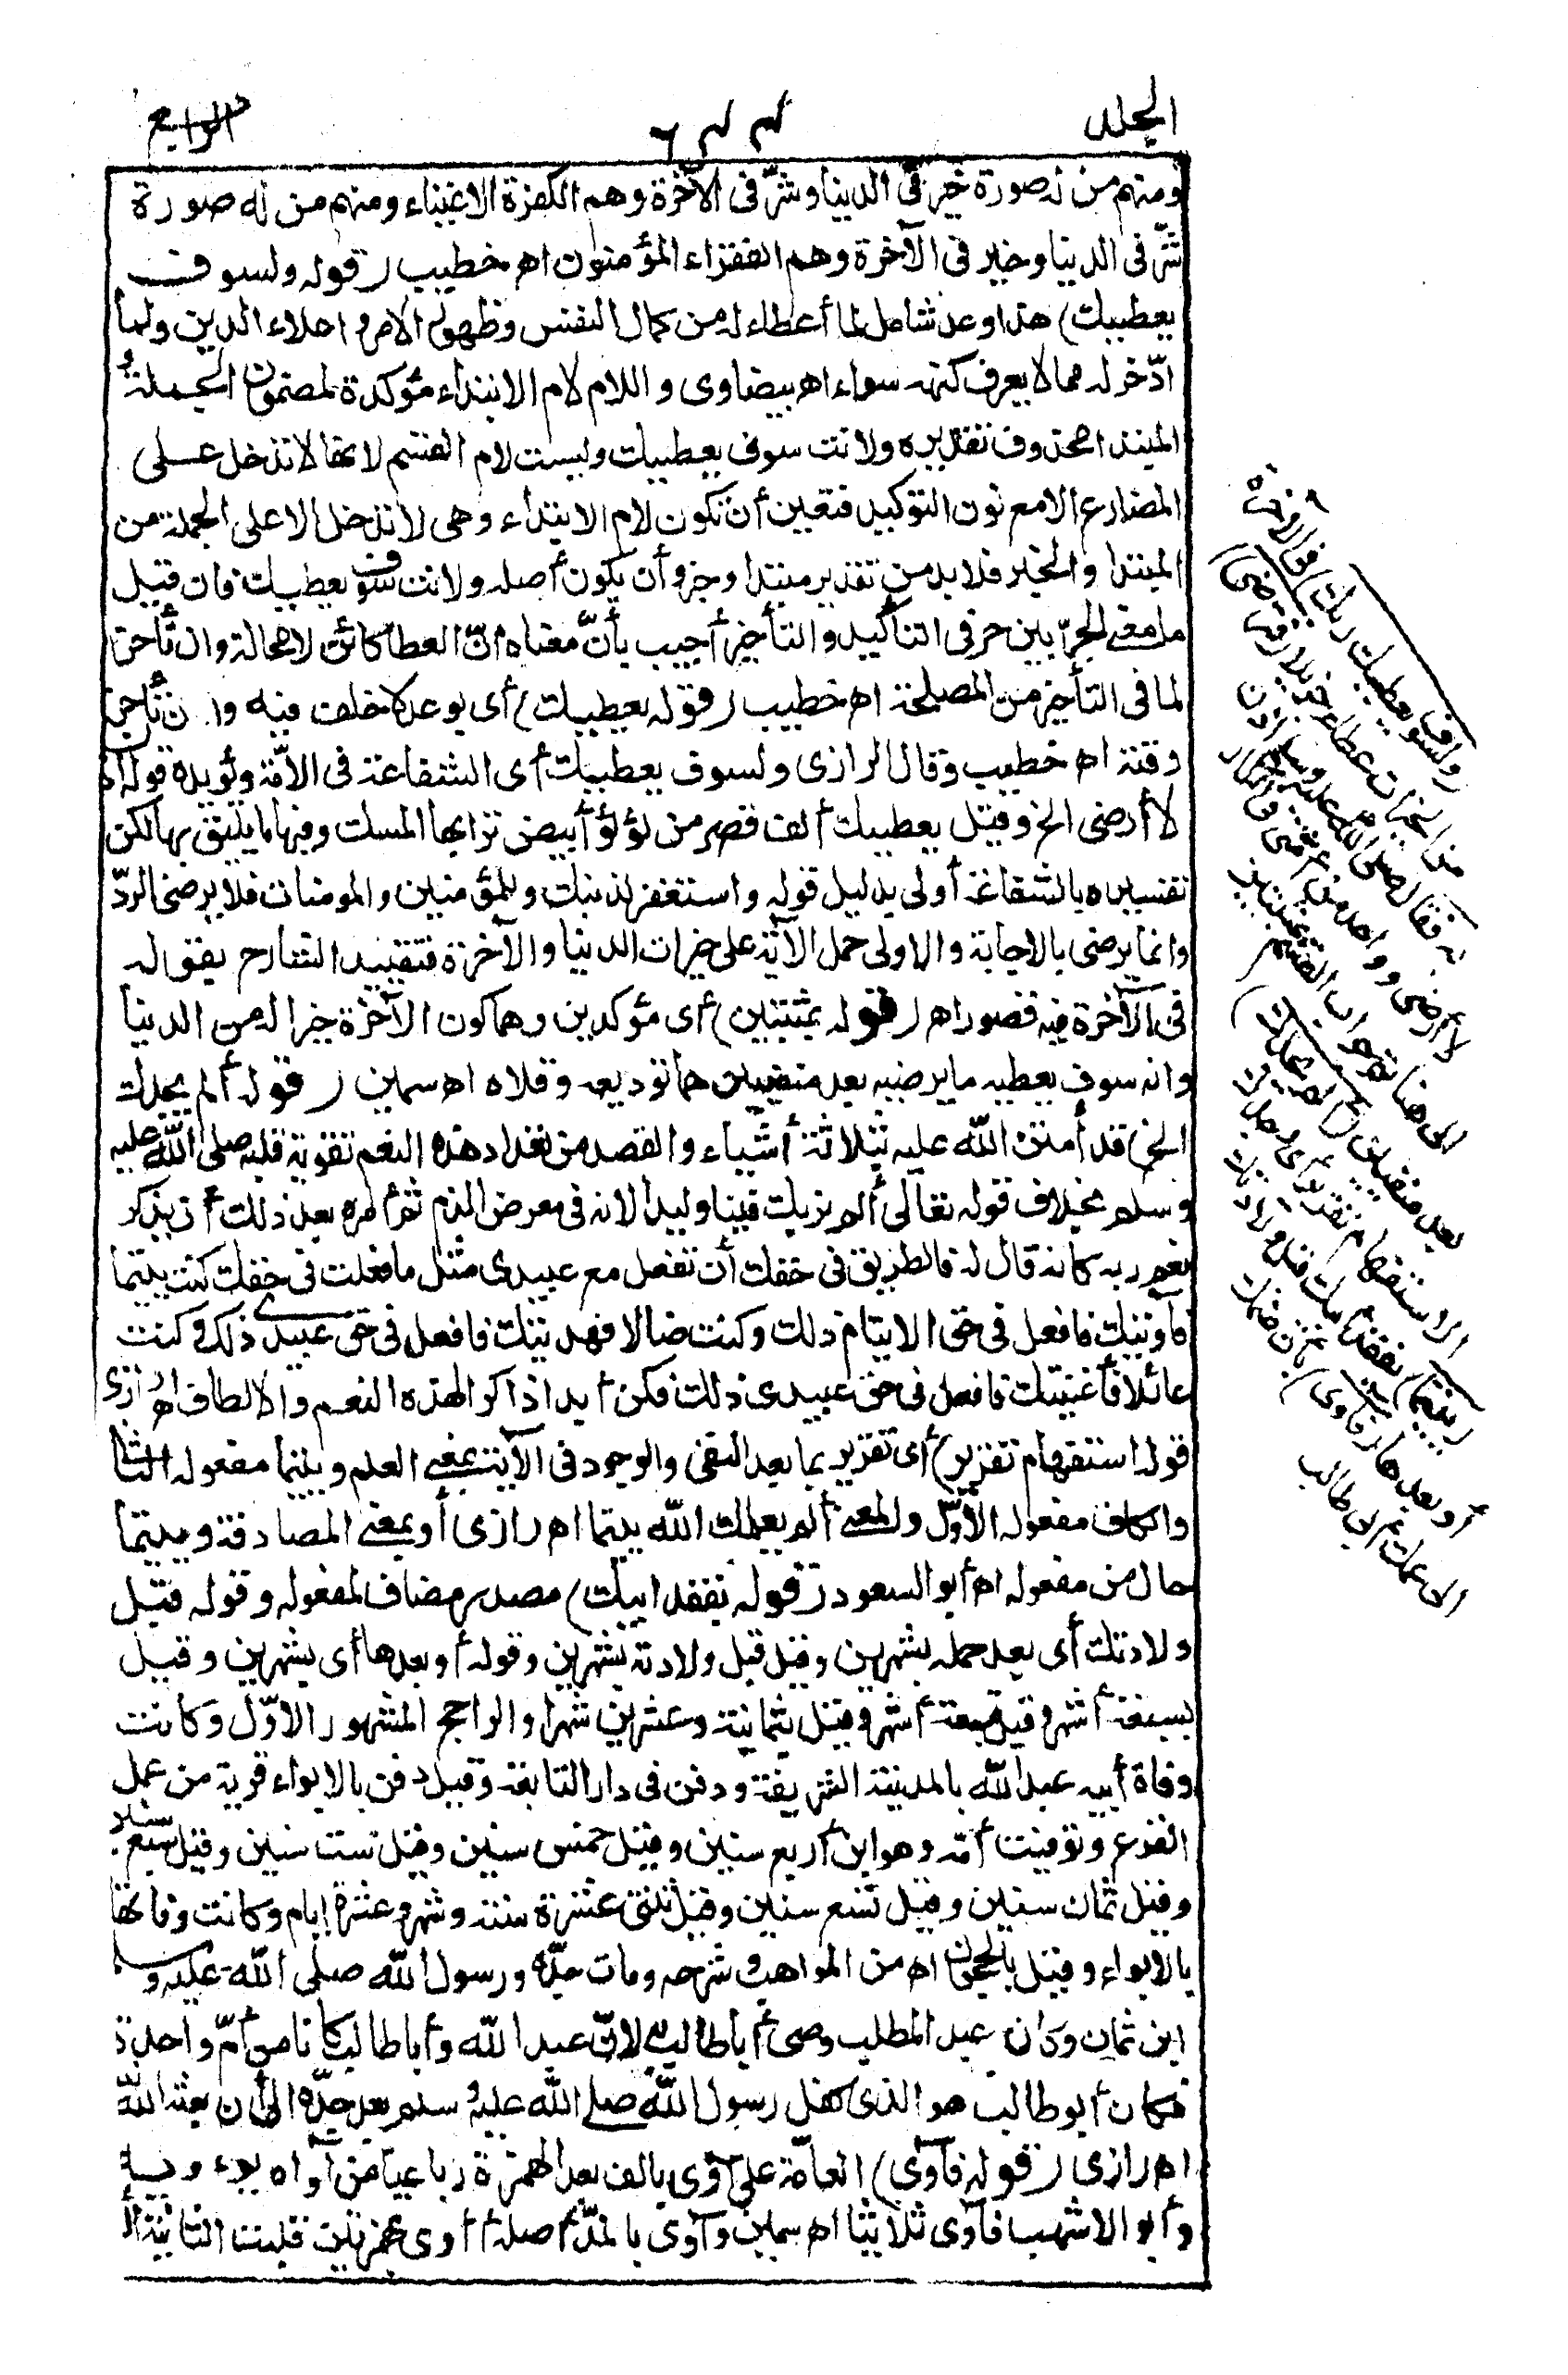 الجلد
٦٤٤
الرابع
ومنهم من له صورة خير في الدنيا وشرّ في الآخرة وهم الكفرة الاغنياء ومنهم من له صورة
شرّ في الدنيا وخير في الآخرة وهم الفقراء المؤمنون اهـ خطيب (قوله ولسوف
يعطيك) هذا وعد شامل لما أعطاه له من كمال النفس وظهور الامر واعلاء الدين ولما
ادّخر له مما لا يعرف كنهه سواه اهـ بيضاوى واللام لام الابتداء مؤكدة لمضمون الجملة و
المبتدا محذوف تقديره ولانت سوف يعطيك وليست لام القسم لانها لا تدخل على
المضارع الا مع نون التوكيد فتعين أن تكون لام الابتداء وهى لا تدخل الا على الجملة من
المبتدا والخبر فلا بد من تقدير مبتدا وخبر وأن يكون أصله ولانت سوف يعطيك فان قيل
ما معنى الجمع بين حرفى التأكيد والتأخير أجيب بأنّ معناه انّ العطاء كائن لا محالة وان تأخر
لما فى التأخير من المصلحة اهـ خطيب (قوله يعطيك) أى يوعد لا خلف فيه وان تأخر
وقته اهـ خطيب وقال الرازى ولسوف يعطيك أى الشفاعة فى الامّة ويؤيده قوله اذا
لا أرضى الخ وقيل يعطيك ألف قصر من لؤلؤ أبيض ترابها المسك وفيها ما يليق بها لكن
تفسيره بالشفاعة أولى بدليل قوله واستغفر لذنبك وللمؤمنين والمومنات فلا يرضى الردّ
وانما يرضى بالاجابة والاولى حمل الآية على خيرات الدنيا والآخرة فتقييد الشارح بقوله
فى الآخرة فيه قصور اهـ (قوله بمثبتين) أى مؤكدين وهما كون الآخرة خيرا له من الدنيا
وانه سوف يعطيه ما يرضيه بعد منفيين هما توديعه وقلاه اهـ سمين (قوله ألم يجدك
الخ) قد أمتن الله عليه بثلاثة أشياء والقصد من تعداد هذه النعم تقوية قلبه صلى الله عليه
وسلم بخلاف قوله تعالى ألم نربك فينا وليدا لانه فى معرض الذم ثم أمره بعد ذلك أن يذكر
نعم ربه كانه قال له فالطريق فى حقك أن تفعل مع عبيدى مثل ما فعلت فى حقك كنت يتيما
فآويتك فافعل فى حق الايتام ذلك وكنت ضالا فهديتك فافعل فى حق عبيدى ذلك وكنت
عائلا فأغنيتك فافعل فى حق عبيدى ذلك فكن أبدا ذاكرا لهذه النعم والالطاف اهـ رازى
قوله استفهام تقرير) أى تقرير بما بعد النفى والوجود فى الآية بمعنى العلم ويتيما مفعوله الثانى
والكاف مفعوله الاوّل والمعنى ألم يعلمك الله يتيما اهـ رازى أو بمعنى المصادفة ويتيما
حال من مفعوله اهـ أبو السعود (قوله بفقد ابيك) مصدر مضاف لمفعوله وقوله قبل
ولادتك أى بعد حمله بشهرين وقيل قبل ولادته بشهرين وقوله أو بعدها أى بشهرين وقيل
بسبعة أشهر وقيل بتسعة أشهر وقيل بثمانية وعشرين شهرا والراجح المشهور الاوّل وكانت
وفاة أبيه عبد الله بالمدينة الشريفة ودفن فى دار التابعة وقيل دفن بالابواء قرية من عمل
الفرع وتوفيت أمّه وهو ابن أربع سنين وقيل خمس سنين وقيل ست سنين وقيل سبع سنين
وقيل ثمان سنين وقيل تسع سنين وقيل ثنتى عشرة سنة وشهر وعشرة ايام وكانت وفاتها
بالابواء وقيل بالحجون اهـ من المواهب وشرحه ومات جدّه ورسول الله صلى الله عليه وسلم
ابن ثمان وكان عبد المطلب وصى أبا طالب به لانّ عبد الله وأبا طالب كانا من أمّ واحدة
فكان أبو طالب هو الذى كفل رسول الله صلى الله عليه وسلم بعد جدّه الى أن بعثه الله
اهـ رازى (قوله فآوى) العامّة على آوى بالف بعد الهمزة رباعيا من آواه يؤويه
وأبو الاشهب فأوى ثلاثيا اهـ سمين وآوى بالمدّ أصله أأوى بهمزتين قلبت الثانية أ
(ولسوف يعطيك ربك) فى الآخرة
من الخيرات عطاء جزيلا (فترضى)
به فقال صلى الله عليه وسلم اذن
لا أرضى وواحد من أمتى فى النار
الى هنا تم جواب القسم بمثبتين
بعد منفيين (ألم يجدك)
الاستفهام تقرير أى وجدك
(يتيما) بفقد أبيك قبل ولادتك
أو بعدها (فآوى) بأن ضمك
الى عمك أبى طالب